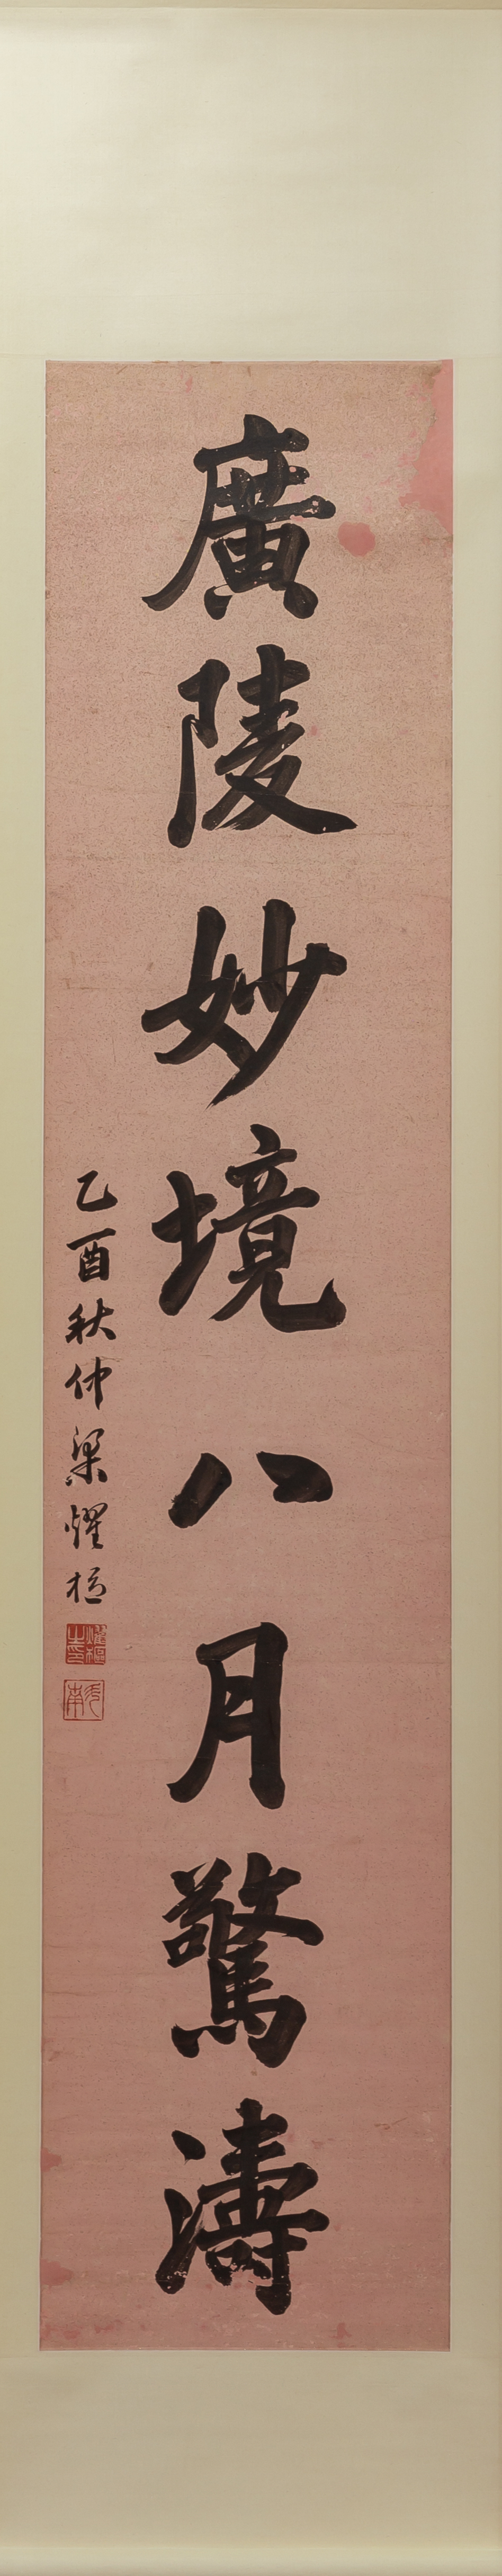 廣陵妙境八月驚濤
乙酉秋仲梁耀樞